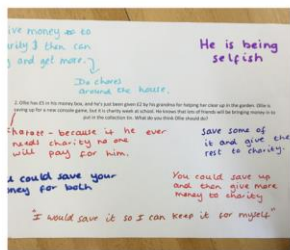 ive money so to
rity I then can
y and get more.
He is being
selfish
Do chores
around the house.
2. Ollie has £5 in his money box, and he's just been given £2 by his grandma for helping her clear up in the garden. Ollie is
saving up for a new console game, but it is charity week at school. He knows that lots of friends will be bringing money in to
put in the collection tin. What do you think Ollie should do?
- because if he ever
needs charity no one
will pay for him.
save some of
it and give the
rest to charity.
u could save your
oney for both
You could save up
and then give more
money to charity
"I would save it so I can keep it for myself"